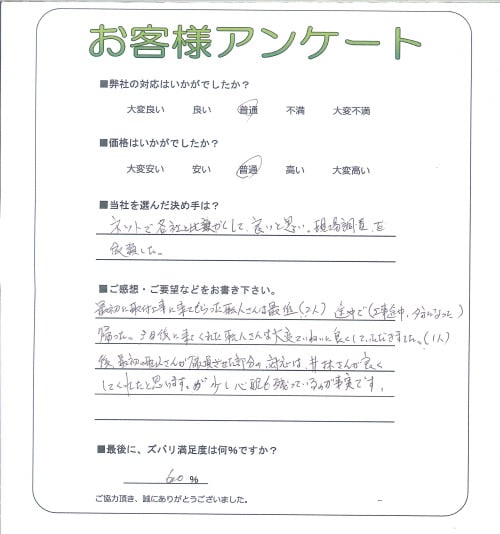 お客様アンケート
■弊社の対応はいかがでしたか？
大変良い 良い 普通 不満 大変不満
■価格はいかがでしたか？
大変安い 安い 普通 高い 大変高い
■当社を選んだ決め手は？
ネットで各社と比較がして、良いと思い。現場調査、
依頼した。
■ご感想・ご要望などをお書き下さい。
最初に取付工事に来てもらった職人さんは最低（2人）途中で（工事途中、夕方になった）
帰った。3日後に来てくれた職人さんは大変ていねいに良くしていただきました。（1人）
後、最初の職人さんが破損させた部分の対応は、井林さんが良く
してくれたと思いますが少し心配も残っているのが事実です。
■最後に、ズバリ満足度は何％ですか？
60 %
ご協力頂き、誠にありがとうございました。